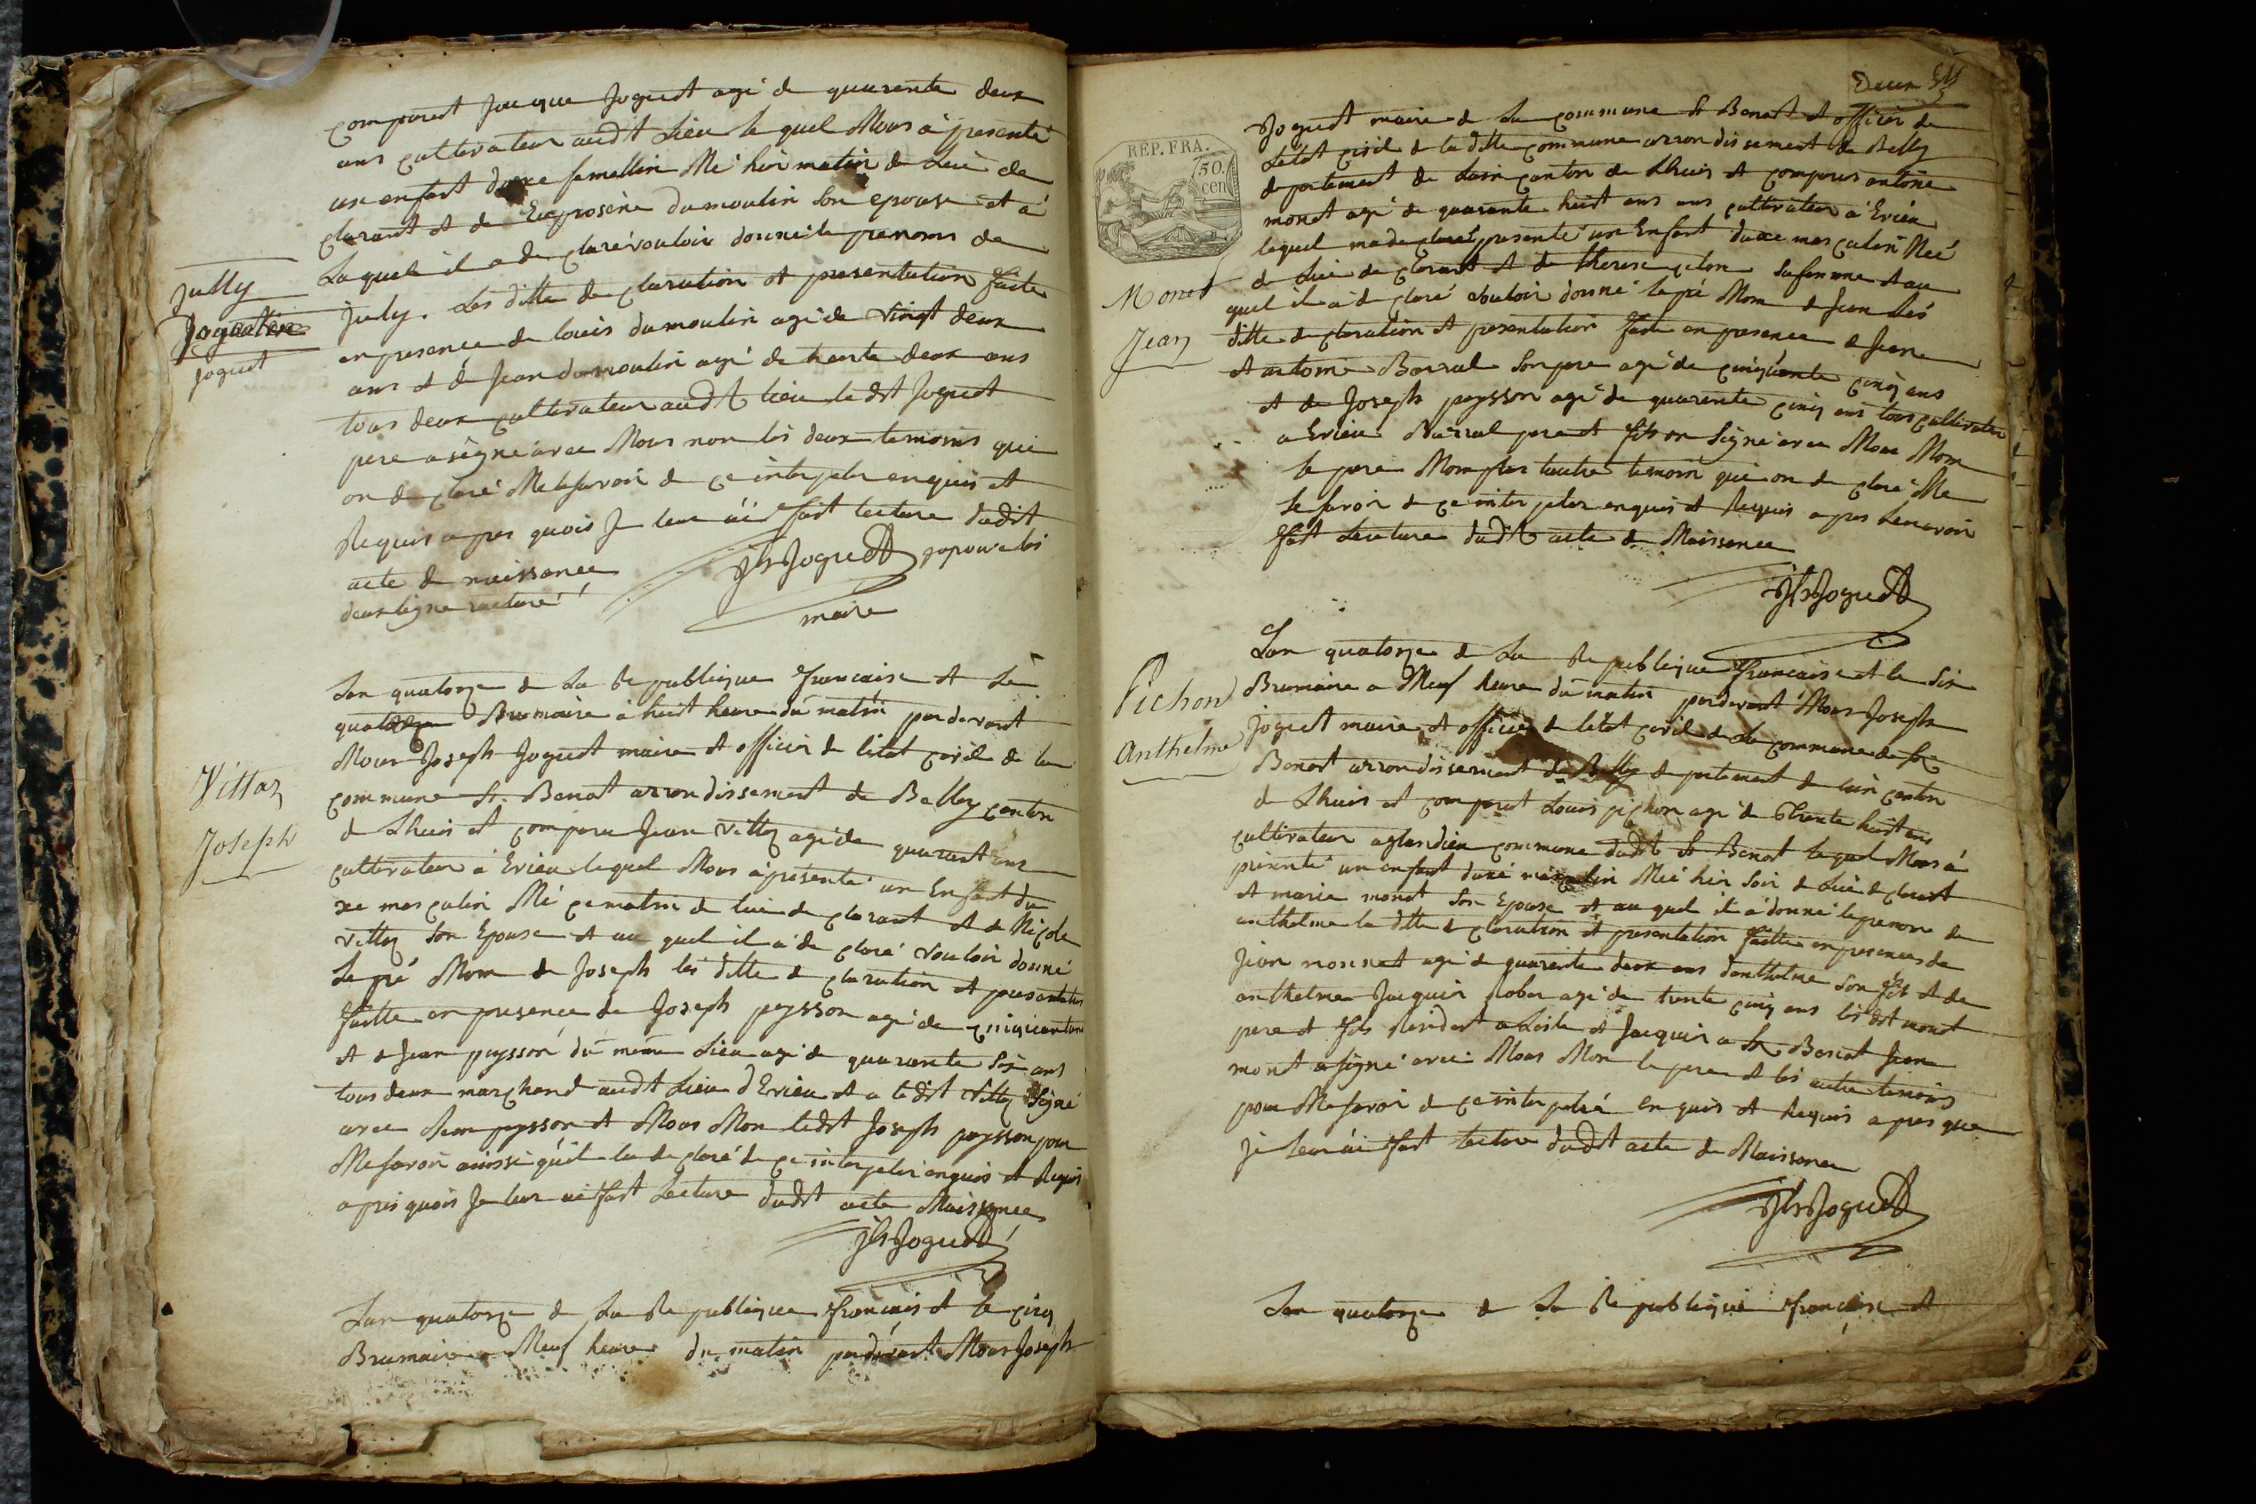 comparut Jacque Joguet agé de quarente deux
ans cultivateur audit Lieu le quel Nous à presenté
un enfant du sexe femellin Né hier matin de Lui de
clarant et de Euprosène dumoulin Son epouse et à
Laquel il a de claré vouloir donné le prenoms de
July. Les ditte de claration et presentation faite
en presence de louis dumoulin agé de vingt deux
ans et de Jean dumoulin agé de trente deux ans
tous deux cultivateur audit lieu le dit Joguet
pere a signé avec Nous non les deux temoins qui
on de claré Ne le savoir de ce interpeler enquis et
Requis apres quois Je leur ai fait lecture dudit
acte de naissance
deux ligne raturé
Jph Joguet
maire
July
Joguet
Lan quatorze de La Re publique francaise et Le
quatorze Brumaire à huit heure du matin par devant
Nous Joseph Joguet maire et officier de létat civil de la
commune St. Benoit arrondissement de Belley canton
de Lhuis et comparu Jean vittoz agé de quarant ans
cultivateur à Evieu lequel Nous à présenté un Enfant du
xe masculin Né ce matin de lui de clarant et de Nicole
vittoz Son Epouse et au quel il à de claré vouloir donné
Le pré Nom de Joseph les ditte de claration et presentation
faitte en presence de Joseph peysson agé de cinquante
et de Jean peysson du même Lieu agé de quarante Six ans
tous deux marchand audit Lieu d'Evieu et a le dit vittoz Signé
avec Jean peysson et Nous Non ledit Joseph peysson pour
Ne savoir ainssi qu'il la de claré de ce interpeler enquis et Requis
apres quois Je leur ai fait Lecture dudit acte Naissance
Jph Joguet
Vittoz
Joseph
Lan quatorze de La Re publique francais et le cinq
Brumaire a Neuf heure du matin par devant Nous Joseph
REP. FRA.
50
cen
Joguet maire de La commune St Benoit et officier de
Létat civil de la ditte commune arrondissement de Belley
departement de Lain canton de Lhuis et comparus antoine
monet agé de quarante huit ans cultivateur à Evieu
lequel ma de claré presenté un Enfant du xe masculin Neé
de Lui de clarant et de therese Sa femme et au
quel il a de claré vouloir donné le pré Nom de Jean Lés
ditte de claration et presentation fait en presence de Jean
et antoine Barral Son pere agé de cinquante cinq ans
et de Joseph peysson agé de quarente cinq ans tous cultivateur
a Evieu Barral pere et fils on Signé avec Nous Non
le pere Non plus lautre temoin qui on de claré Ne
le savoir de ce inter peler enquis et Requis apres Leur avoir
fait Lecture dudit acte de Naissance
Jph Joguet
Monet
Jean
Lan quatorze de La Re publique francaise et le Six
Brumaire a Neuf heure du matin par devant Nous Joseph
joguet maire et officier de létat civil de La commune de St
Benoit arrondissement de Belley departement de Lain canton
de Lhuis et comparut Louis pichon agé de trente huit ans
cultivateur a glandieu commune dudit St Benoit lequel Nous à
présenté un enfant du xé masculin Né hier Soir de Lui de clarant
et marie monet Son Epouse et au quel il a donné le prenom de
anthelme la ditte de claration et presentation faitte en presences de
Jean monnet agé de quarente deux ans danthelme Son fils et de
anthelme Jacquier agé de trente cinq ans lés dit monet
pere et fils Résidant a Loile et Jacquier a St Benoit Jean
monet a signé avec Nous Non le pere et les autre temoins
pour Ne savoir de ce interpeler enquis et Requis apres que
je leur ai fait lecture dudit acte de Naissance
Jph Joguet
Pichon
anthelme
Lan quatorze de La Re publique française et